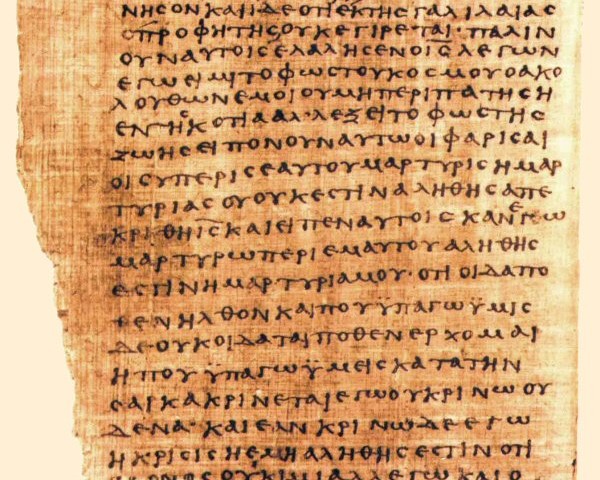 ΝΗϹΟΝΚΑΙΙΔΕΟΤΙΕΚΤΗϹΓΑΛΙΛΑΙΑϹ
ΟΠΡΟΦΗΤΗϹΟΥΚΕΓΙΡΕΤΑΙ·ΠΑΛΙΝ
ΟΥΝΑΥΤΟΙϹΕΛΑΛΗϹΕΝΟΙ̅Ϲ̅ΛΕΓΩΝ
ΕΓΩΕΙΜΙΤΟΦΩϹΤΟΥΚΟϹΜΟΥΟΑΚΟ
ΛΟΥΘΩΝΕΜΟΙΟΥΜΗΠΕΡΙΠΑΤΗϹΗ
ΕΝΤΗϹΚΟΤΙΑΑΛ·ΛΕΞΕΙΤΟΦΩϹΤΗϹ
ΖΩΗϹΕΙΠΟΝΟΥΝΑΥΤΩΟΙΦΑΡΙϹΑΙ
ΟΙϹΥΠΕΡΙϹΕΑΥΤΟΥΜΑΡΤΥΡΙϹΗΜΑΡ
ΤΥΡΙΑϹΟΥΟΥΚΕϹΤΙΝΑΛΗΘΗϹΑΠΕ
ΚΡΙΘΗΙ̅Ϲ̅ΚΑΙΕΙΠΕΝΑΥΤΟΙϹΚΑΝΕΓΩ
ΜΑΡΤΥΡΩΠΕΡΙΕΜΑΥΤΟΥΑΛΗΘΗϹ
ΕϹΤΙΝΗΜΑΡΤΥΡΙΑΜΟΥ·ΟΤΙΟΙΔΑΠΟ
ΘΕΝΗΛΘΟΝΚΑΙΠΟΥΫΠΑΓΩΫΜΙϹ
ΔΕΟΥΚΟΙΔΑΤΑΙΠΟΘΕΝΕΡΧΟΜΑΙ
ΗΠΟΥΫΠΑΓΩΫΜΕΙϹΚΑΤΑΤΗΝ
ϹΑΡΚΑΚΡΙΝΕΤΑΙΕΓΩΟΥΚΡΙΝΩΟΥ
ΔΕΝΑ·ΚΑΙΕΑΝΚΡΙΝΩΔΕΕΓΩ
ΗΚΡΙϹΙϹΗΕΜΗΑΛΗΘΗϹΕϹΤΙΝΟΤΙ
ΜΟΝΟϹΟΥΚΙΜΙΑΛΛΕΓΩΚΑΙΟ